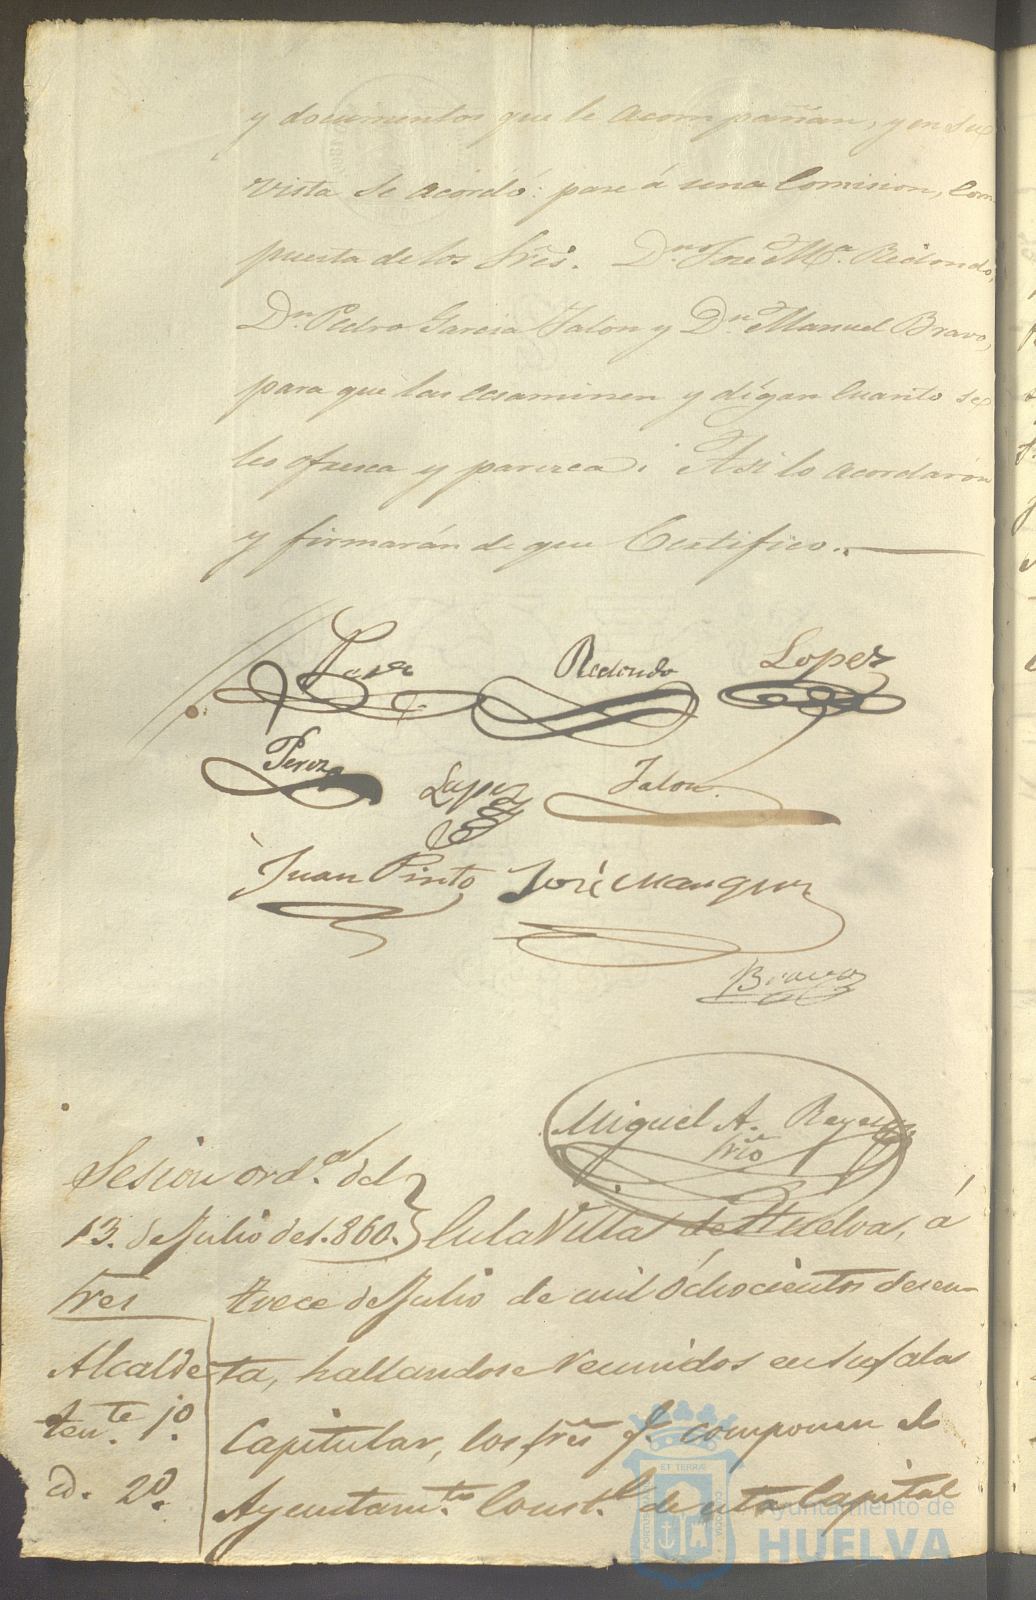 y documentos que le acompañan, y en su
vista se acordó: pase á una Comision, com
puesta de los Sres. Dn. Jose Ma. Redondo,
Dn. Pedro Garcia Jalon y Dn. Manuel Bravo,
para que las ecsaminen y dígan cuanto se
les ofresca y paresca: Asi lo acordarón
y firmarán de que Certifico.
Redondo Lopez
Perez Lopez Jalon
Juan Pinto José Marquez
Bravo
Miguel A. Reyes
Srio
Sesion orda. del
13. de Julio de 1.860.
Sres
Alcalde
tente. 1º.
id. 2º.
En la Villa de Huelva, á
trece de Julio de mil Ochocientos desen-
ta, hallandose reunidos en su Sala
Capitular, los Sres q. componen el
Ayuntamto. Constl. de esta Capital
Ayuntamiento de
HUELVA